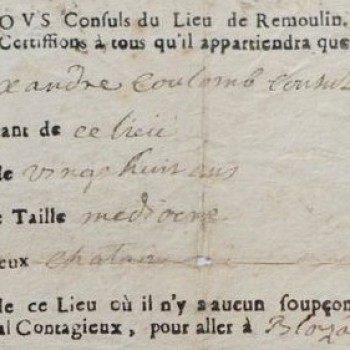 OVS Consuls du Lieu de Remoulin.
Certiffions à tous qu'il appartiendra que
xandre coulomb consul
ant de ce lieu
e vingt huit ans
e Taille mediocre
eux chatain
le ce Lieu où il n'y a aucun soupçon
al Contagieux, pour aller à